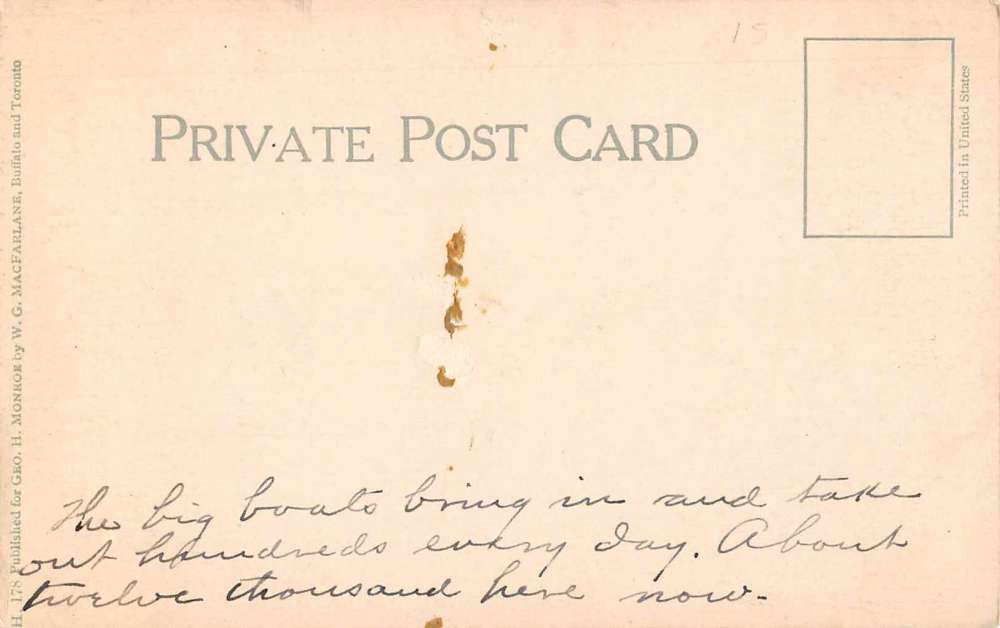 15
PRIVATE POST CARD
Printed in United States
H. 178 Published for GEO. H. MONROE by W. G. MACFARLANE, Buffalo and Toronto
The big boats bring in and take
out hundreds every day. About
twelve thousand here now.